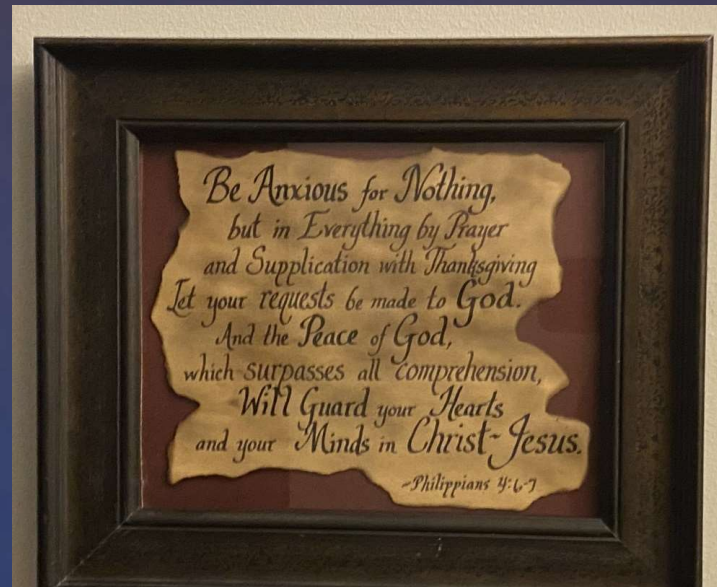 Be Anxious for Nothing,
but in Everything by Prayer
and Supplication with Thanksgiving
Let your requests be made to God.
And the Peace of God,
which surpasses all comprehension,
Will Guard your Hearts
and your Minds in Christ-Jesus.
~Philippians 4:6-7